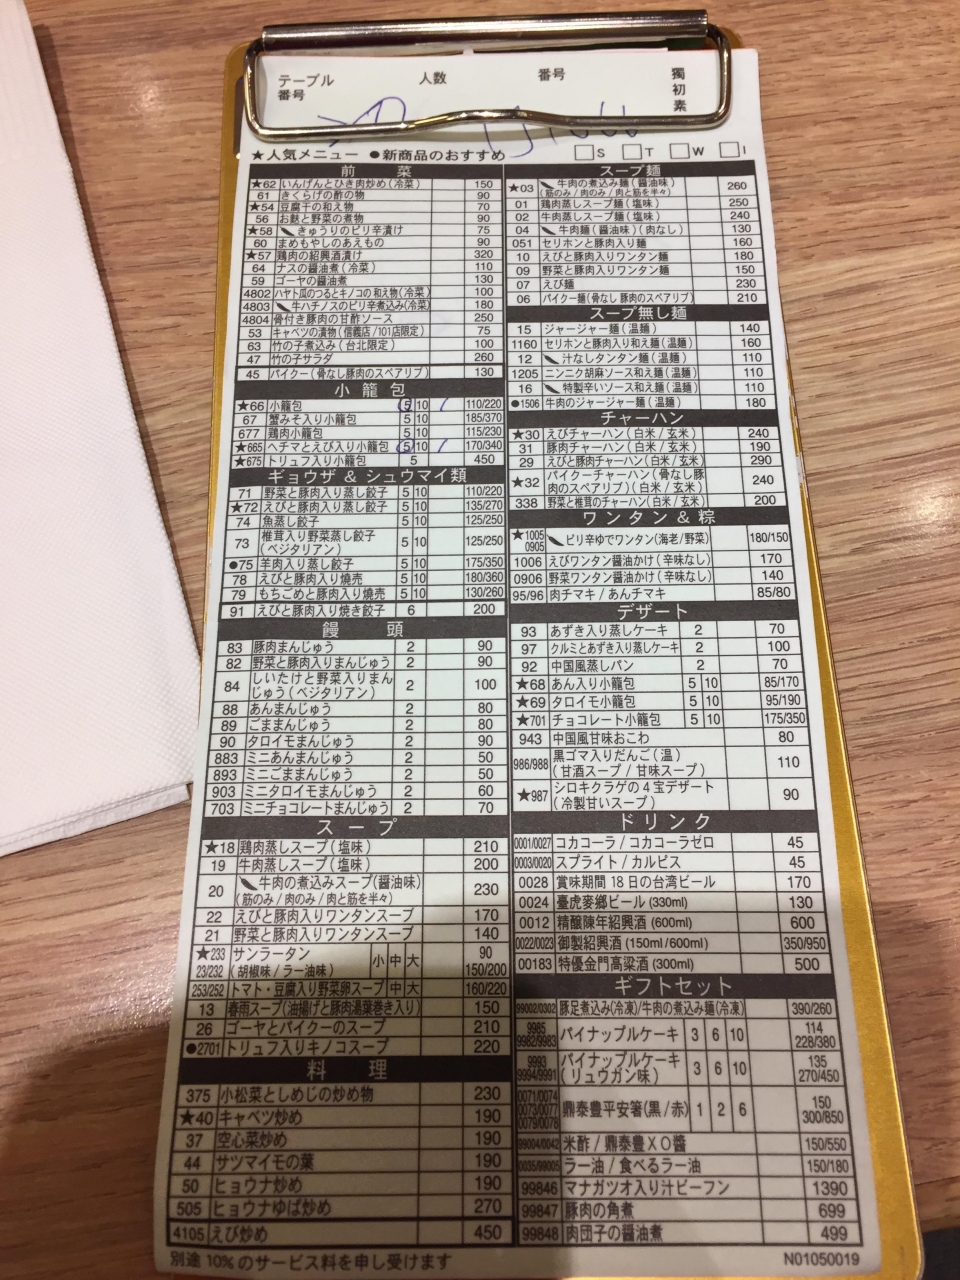 テーブル番号 人数 番号 獨初素
★人気メニュー ●新商品のおすすめ □S □T □W □I
前 菜
★62 いんげんとひき肉炒め(冷菜) 150
61 きくらげの酢の物 90
★54 豆腐干の和え物 70
56 お麩と野菜の煮物 90
★58 きゅうりのピリ辛漬け 75
60 まめもやしのあえもの 90
★57 鶏肉の紹興酒漬け 320
64 ナスの醤油煮(冷菜) 110
59 ゴーヤの醤油煮 130
4802 ハヤト瓜のつるとキノコの和え物(冷菜) 100
4803 牛ハチノスのピリ辛煮込み(冷菜) 180
4804 骨付き豚肉の甘酢ソース 250
53 キャベツの漬物(信義店/101店限定) 75
63 竹の子煮込み(台北限定) 100
47 竹の子サラダ 260
45 パイクー(骨なし豚肉のスペアリブ) 130
小 籠 包
★66 小籠包 5 10 110/220
67 蟹みそ入り小籠包 5 10 185/370
677 鶏肉小籠包 5 10 115/230
★665 ヘチマとえび入り小籠包 5 10 170/340
★675 トリュフ入り小籠包 5 450
ギョウザ & シュウマイ類
71 野菜と豚肉入り蒸し餃子 5 10 110/220
★72 えびと豚肉入り蒸し餃子 5 10 135/270
74 魚蒸し餃子 5 10 125/250
73 椎茸入り野菜蒸し餃子(ベジタリアン) 5 10 125/250
●75 羊肉入り蒸し餃子 5 10 175/350
78 えびと豚肉入り焼売 5 10 180/360
79 もちごめと豚肉入り焼売 5 10 130/260
91 えびと豚肉入り焼き餃子 6 200
饅 頭
83 豚肉まんじゅう 2 90
82 野菜と豚肉入りまんじゅう 2 90
84 しいたけと野菜入りまんじゅう(ベジタリアン) 2 100
88 あんまんじゅう 2 80
89 ごままんじゅう 2 80
90 タロイモまんじゅう 2 90
883 ミニあんまんじゅう 2 50
893 ミニごままんじゅう 2 50
903 ミニタロイモまんじゅう 2 60
703 ミニチョコレートまんじゅう 2 70
ス ー プ
★18 鶏肉蒸しスープ(塩味) 210
19 牛肉蒸しスープ(塩味) 200
20 牛肉の煮込みスープ(醤油味)
(筋のみ/肉のみ/肉と筋を半々) 230
22 えびと豚肉入りワンタンスープ 170
21 野菜と豚肉入りワンタンスープ 140
★233 サンラータン 小 中 大 90
23/232 (胡椒味/ラー油味) 150/200
253/252 トマト・豆腐入り野菜卵スープ 中 大 160/220
13 春雨スープ(油揚げと豚肉湯葉巻き入り) 150
26 ゴーヤとパイクーのスープ 210
●2701 トリュフ入りキノコスープ 220
料 理
375 小松菜としめじの炒め物 230
★40 キャベツ炒め 190
37 空心菜炒め 190
44 サツマイモの葉 190
50 ヒョウナ炒め 190
505 ヒョウナゆば炒め 270
4105 えび炒め 450
別途 10%のサービス料を申し受けます
スープ麺
★03 牛肉の煮込み麺(醤油味)
(筋のみ/肉のみ/肉と筋を半々) 260
01 鶏肉蒸しスープ麺(塩味) 250
02 牛肉蒸しスープ麺(塩味) 240
04 牛肉麺(醤油味)(肉なし) 130
051 セリホンと豚肉入り麺 160
10 えびと豚肉入りワンタン麺 180
09 野菜と豚肉入りワンタン麺 150
07 えび麺 230
06 パイクー麺(骨なし豚肉のスペアリブ) 210
スープ無し麺
15 ジャージャー麺(温麺) 140
1160 セリホンと豚肉入り和え麺(温麺) 160
12 汁なしタンタン麺(温麺) 110
1205 ニンニク胡麻ソース和え麺(温麺) 110
16 特製辛いソース和え麺(温麺) 110
●1506 牛肉のジャージャー麺(温麺) 180
チャーハン
★30 えびチャーハン(白米/玄米) 240
31 豚肉チャーハン(白米/玄米) 190
29 えびと豚肉チャーハン(白米/玄米) 290
★32 パイクーチャーハン(骨なし豚肉のスペアリブ)(白米/玄米) 240
338 野菜と椎茸のチャーハン(白米/玄米) 200
ワンタン & 粽
★1005 0905 ピリ辛ゆでワンタン(海老/野菜) 180/150
1006 えびワンタン醤油かけ(辛味なし) 170
0906 野菜ワンタン醤油かけ(辛味なし) 140
95/96 肉チマキ/あんチマキ 85/80
デザート
93 あずき入り蒸しケーキ 2 70
97 クルミとあずき入り蒸しケーキ 2 100
92 中国風蒸しパン 2 70
★68 あん入り小籠包 5 10 85/170
★69 タロイモ小籠包 5 10 95/190
★701 チョコレート小籠包 5 10 175/350
943 中国風甘味おこわ 80
986/988 黒ゴマ入りだんご(温)
(甘酒スープ/甘味スープ) 110
★987 シロキクラゲの4宝デザート
(冷製甘いスープ) 90
ドリンク
0001/0027 コカコーラ/コカコーラゼロ 45
0003/0020 スプライト/カルピス 45
0028 賞味期間18日の台湾ビール 170
0024 臺虎麥鄉ビール(330ml) 130
0012 精醸陳年紹興酒(600ml) 600
0022/0023 御製紹興酒(150ml/600ml) 350/950
00183 特優金門高粱酒(300ml) 500
ギフトセット
99002/0302 豚足煮込み(冷凍)/牛肉の煮込み麺(冷凍) 390/260
9985 9982/9983 パイナップルケーキ 3 6 10 114 228/380
9993 9994/9991 パイナップルケーキ(リュウガン味) 3 6 10 135 270/450
0071/0074 0073/0077 0079/0078 鼎泰豊平安箸(黒/赤) 1 2 6 150 300/850
99004/0042 米酢/鼎泰豊XO醬 150/550
0035/99005 ラー油/食べるラー油 150/180
99846 マナガツオ入り汁ビーフン 1390
99847 豚肉の角煮 699
99848 肉団子の醤油煮 499
N01050019